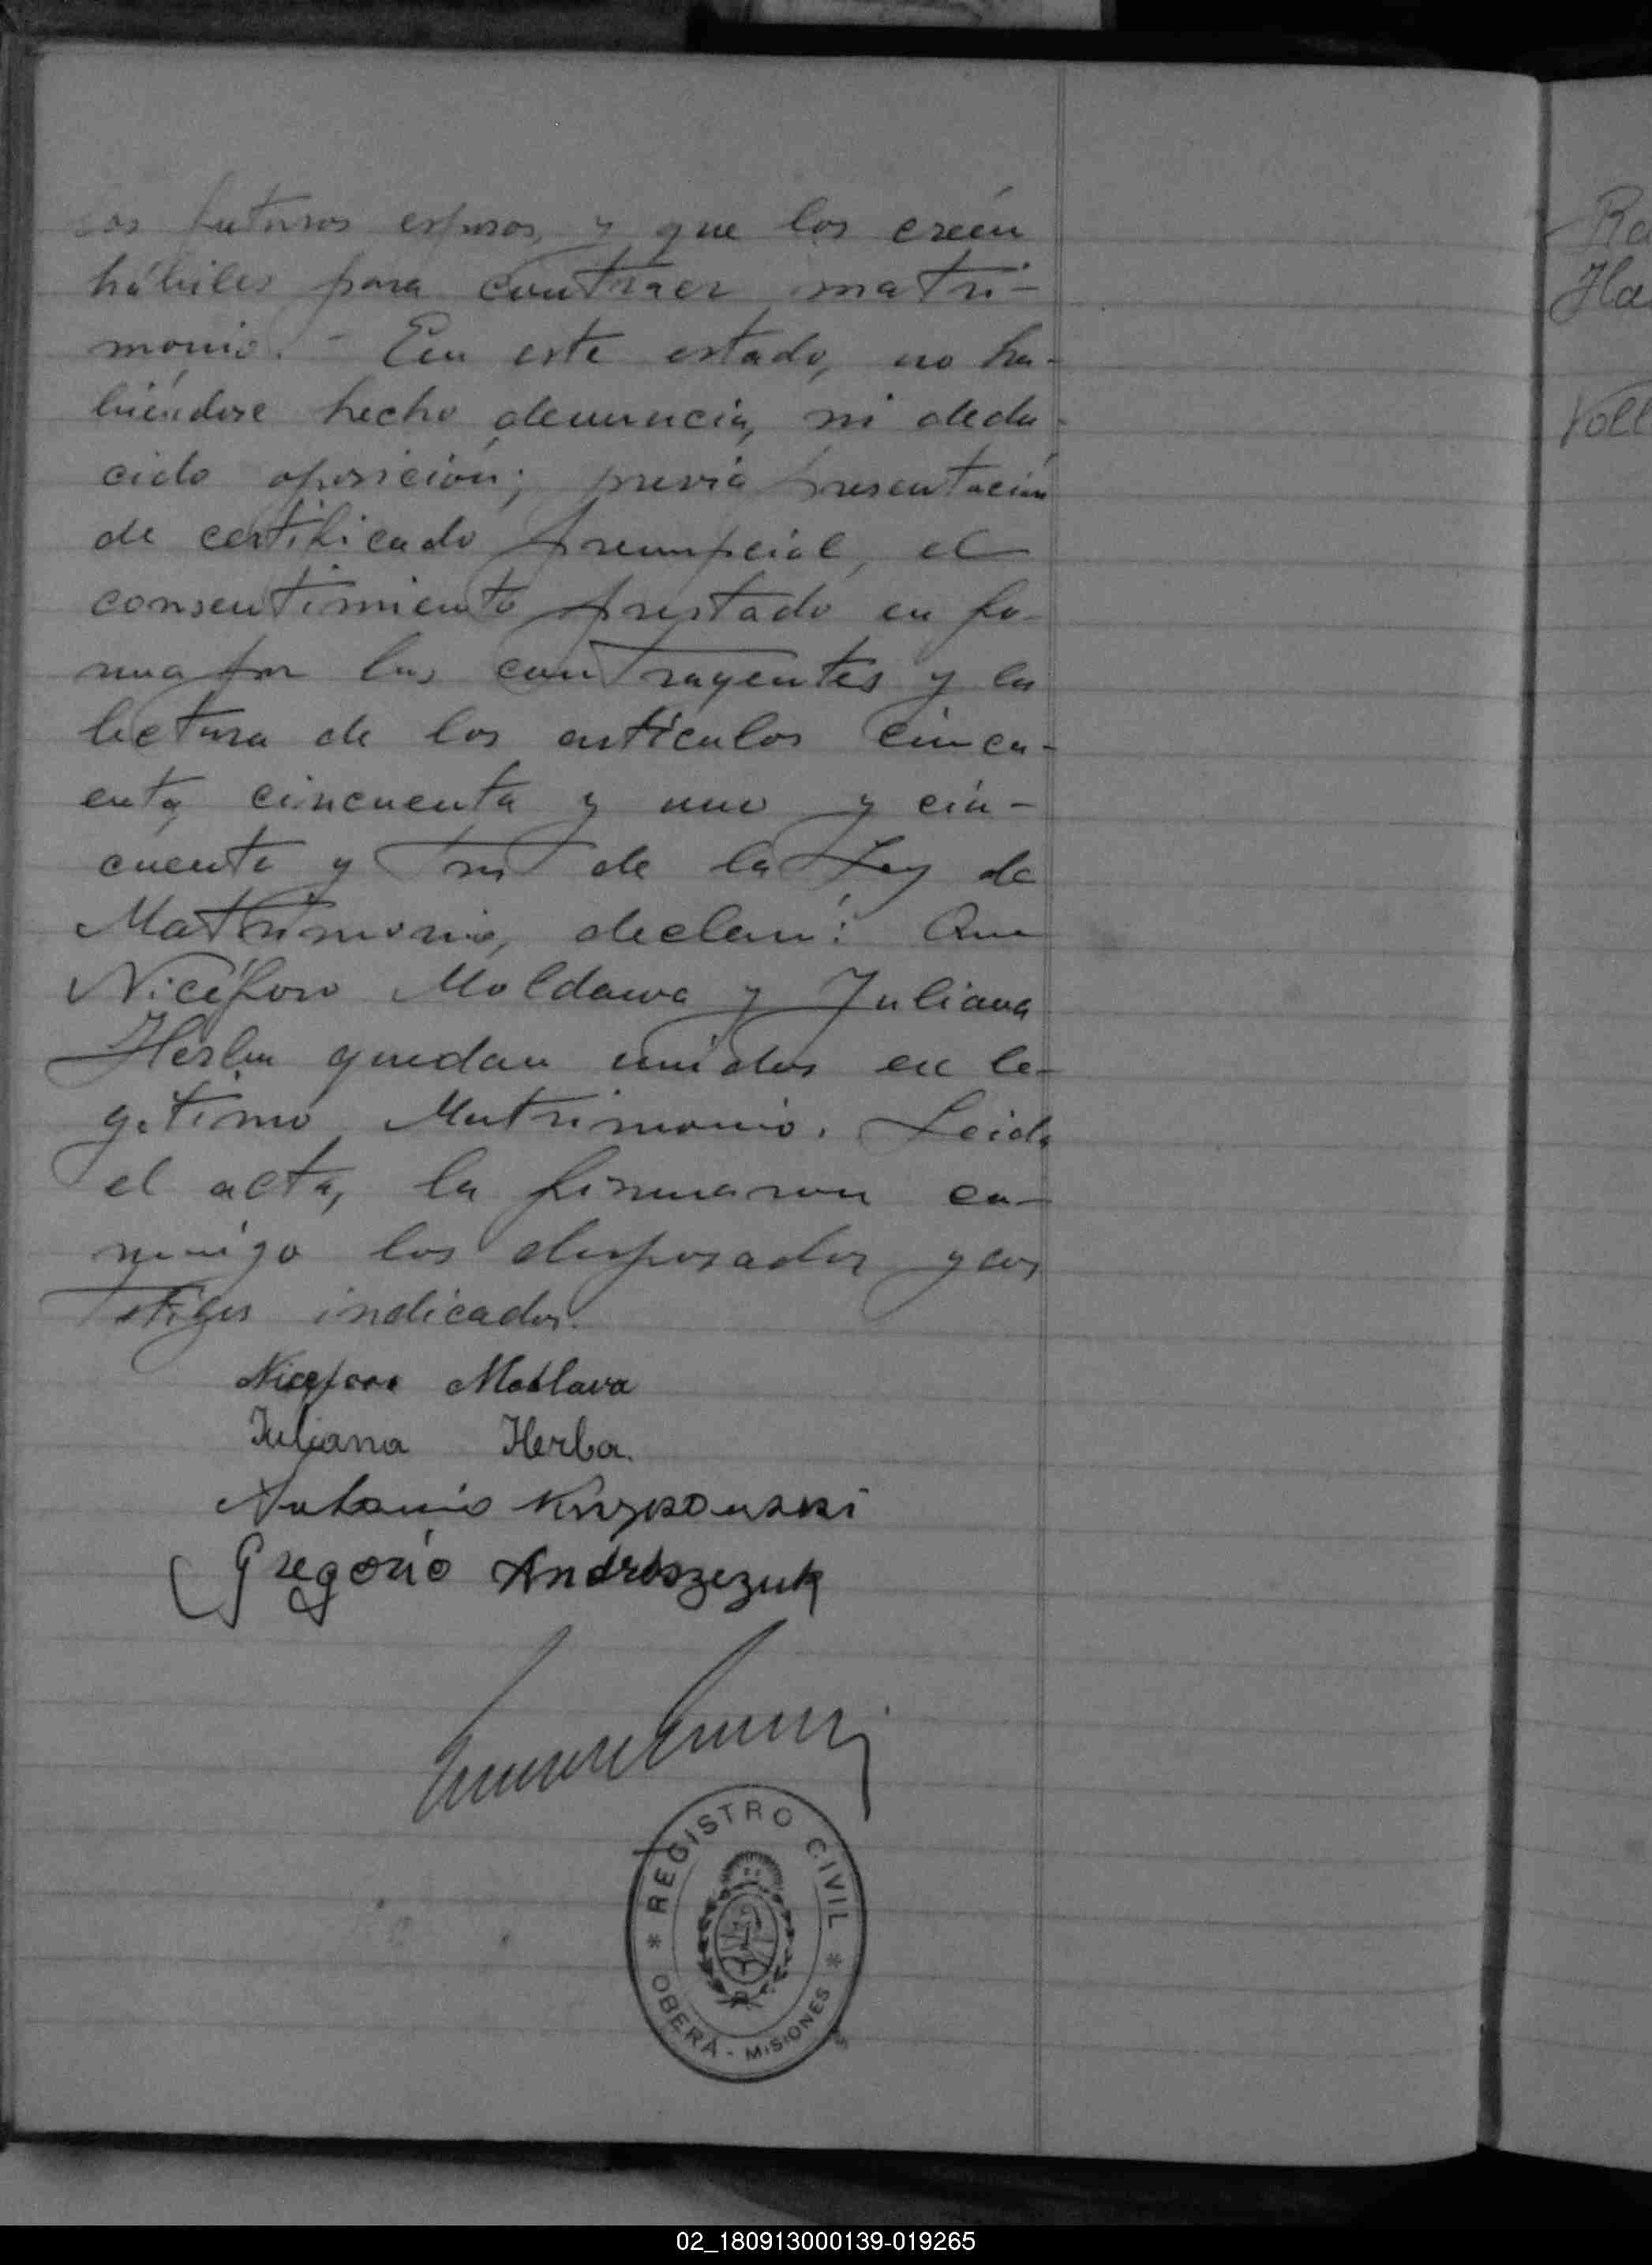 los futuros esposos, y que los creén
hábiles para contraer matri-
monio. - En este estado, no ha-
biéndose hecho denuncia, ni dedu-
cido oposición; previa presentación
de certificado prenupcial, el
consentimiento prestado en fo-
rma por los contrayentes y la
lectura de los artículos cincu-
enta, cincuenta y uno y cin-
cuenta y tres de la Ley de
Matrimonio, declaré: Que
Nicéforo Moldawa y Juliana
Herba quedan unidos en le-
gítimo Matrimonio. Leida
el acta, la firmaron con-
migo los desposados y los
Testigos indicados.
Niceforo Motlava
Juliana Herba.
Antonio Kryszowski
Gregorio Andrószczuk
REGISTRO CIVIL
* OBERÁ - MISIONES *
Ro
Ha
Voll
02_180913000139-019265